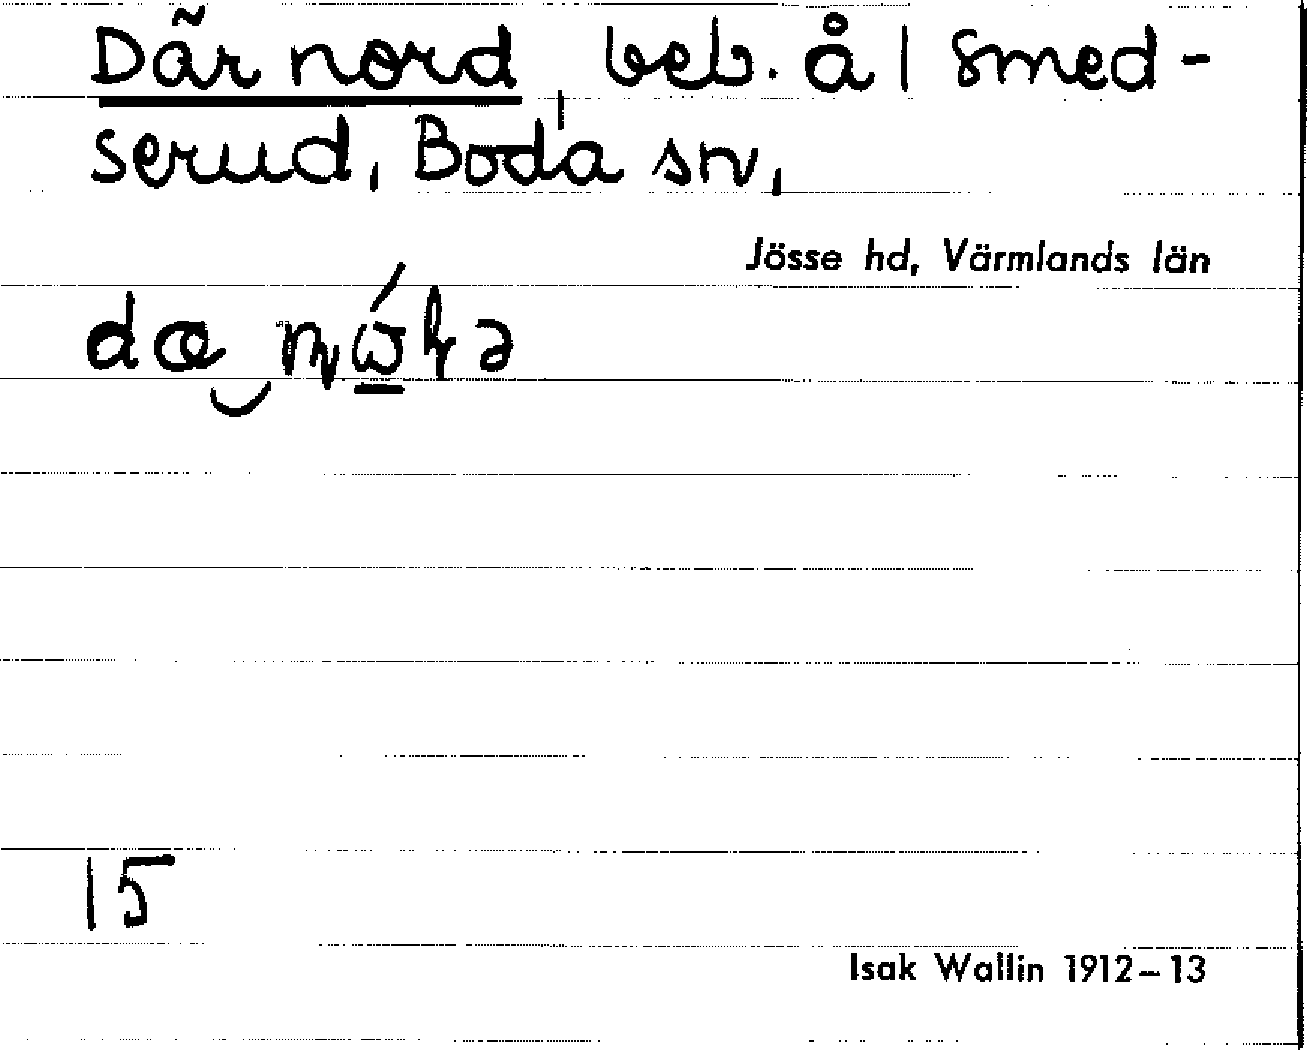 Där nord, beb. å 1 Smed-
serud, Boda sn,
Jösse hd, Värmlands län
15
Isak Wallin 1912–13